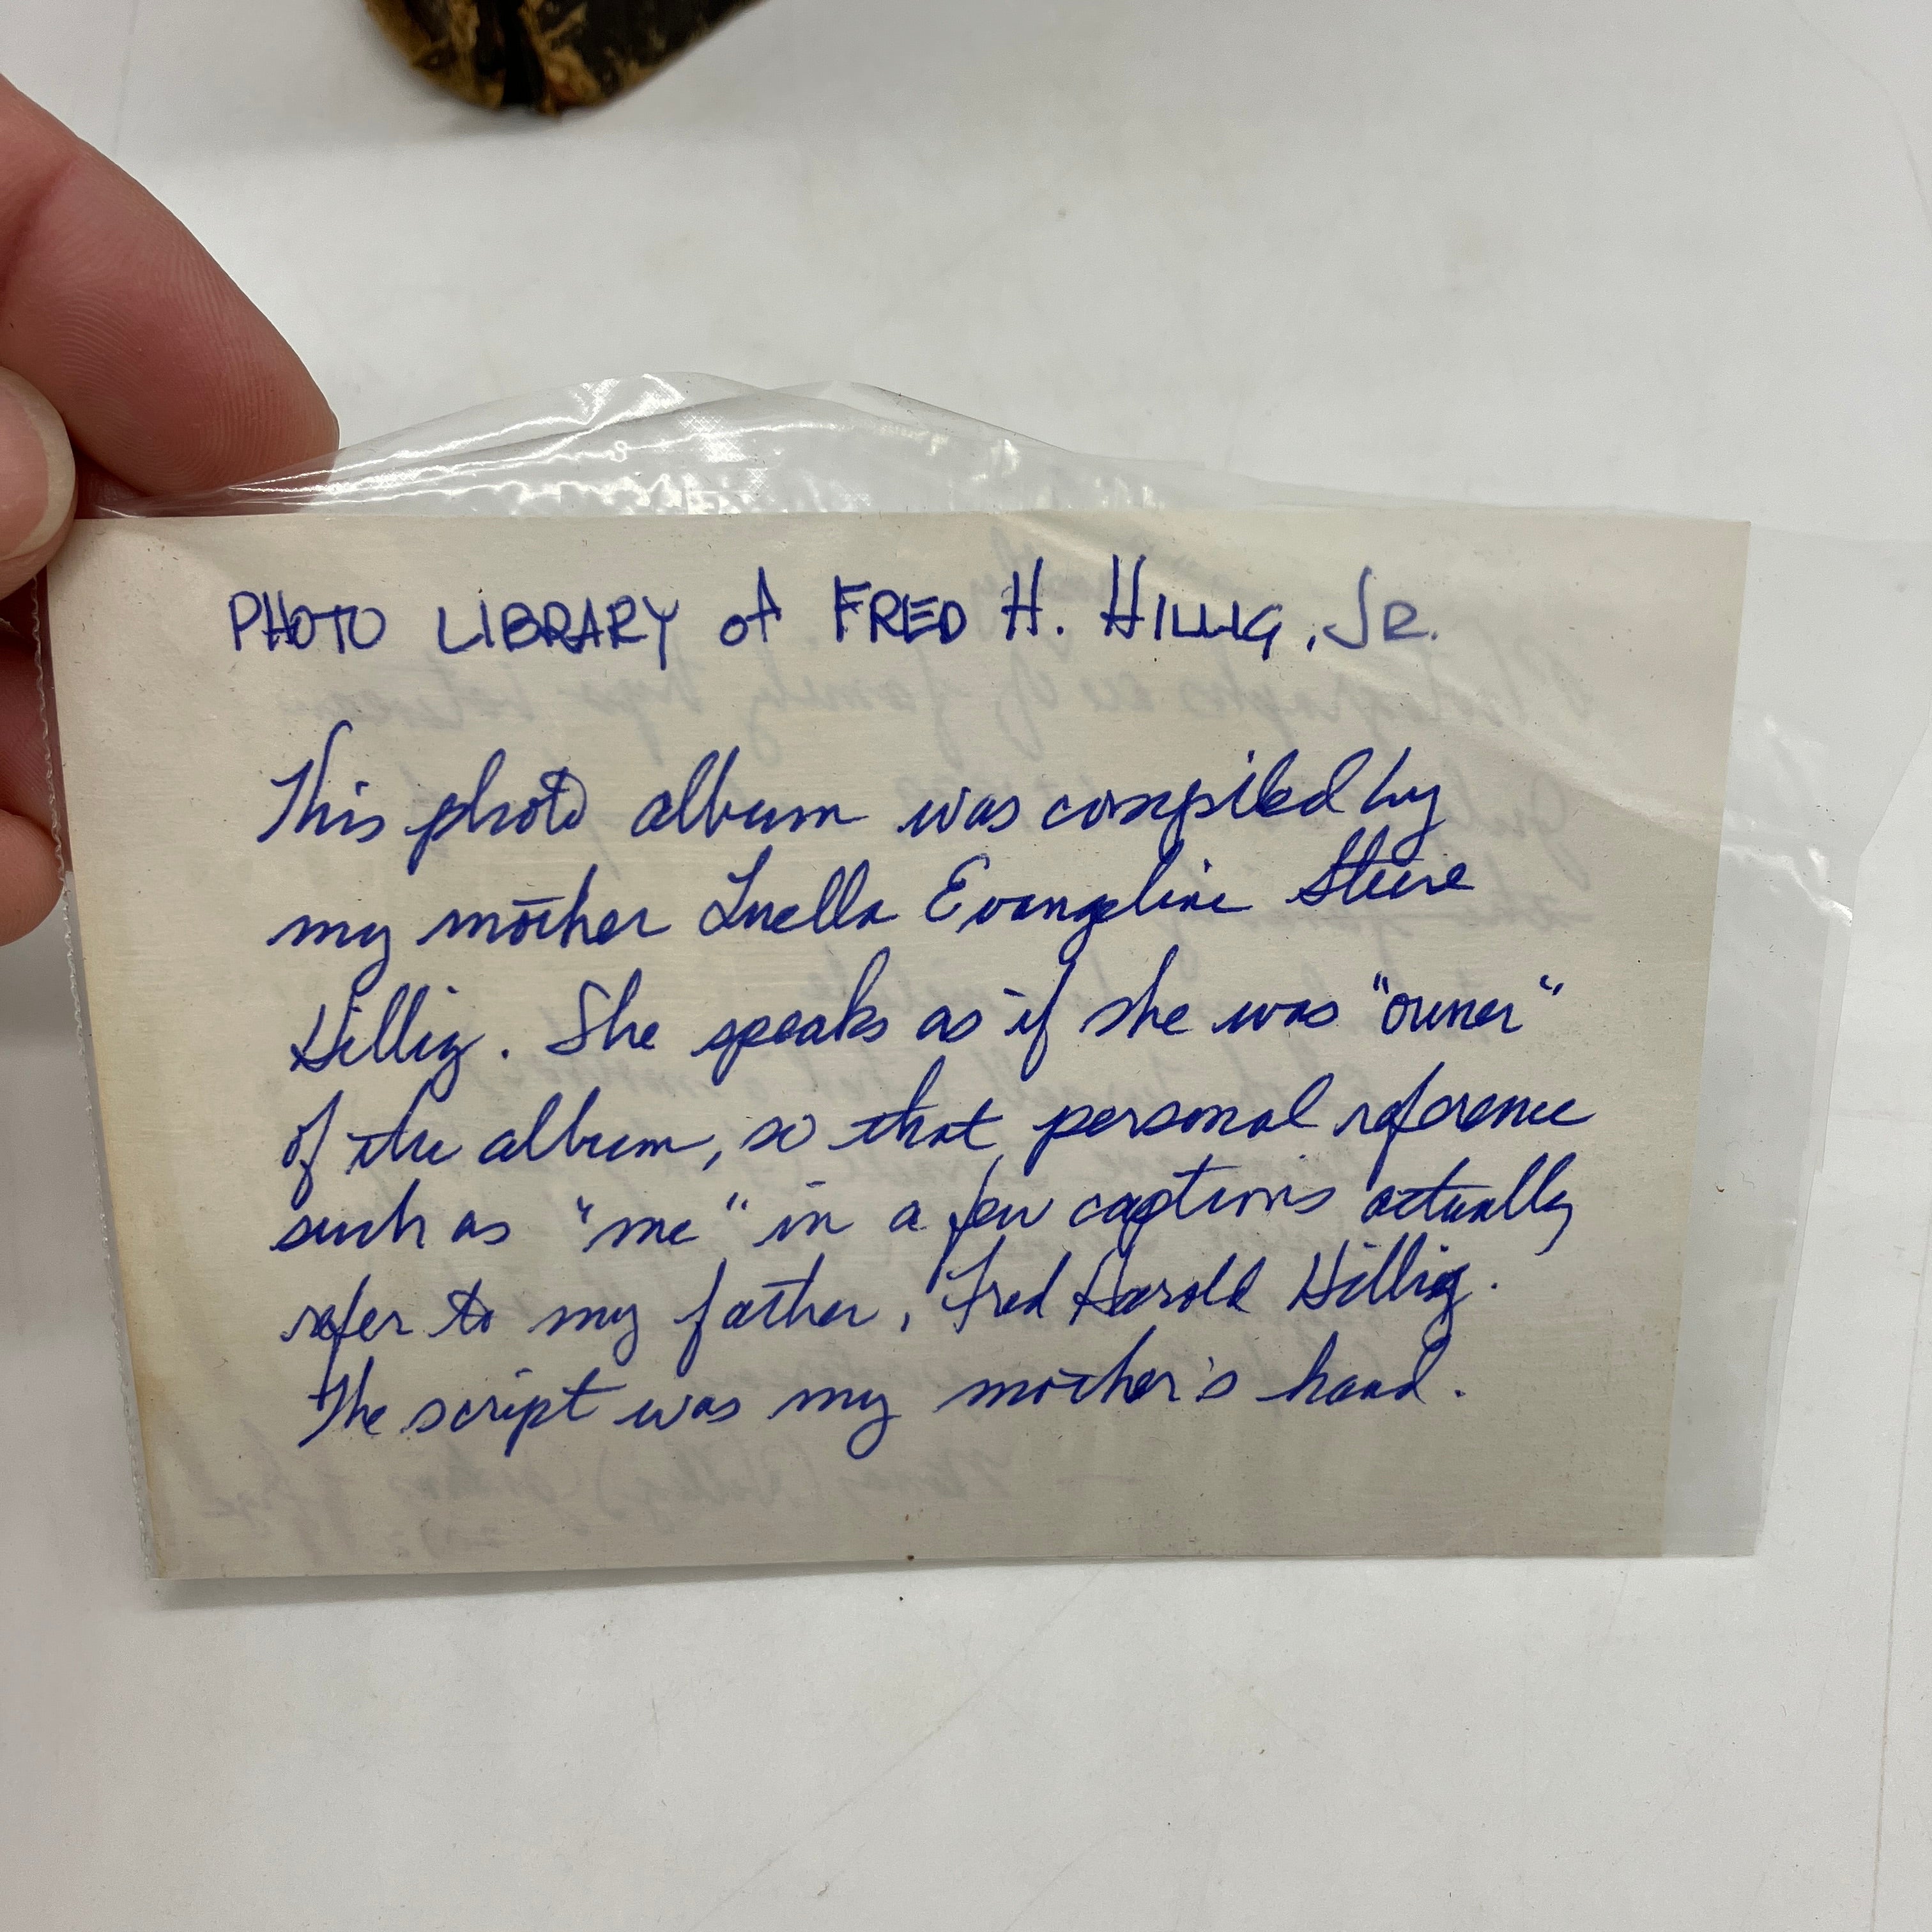 PHOTO LIBRARY of FRED H. HILLIG, JR.
This photo album was compiled by
my mother Luella Evangeline Steere
Hillig. She speaks as if she was "owner"
of the album, so that personal reference
such as "me" in a few captions actually
refer to my father, Fred Harold Hillig.
The script was my mother's hand.